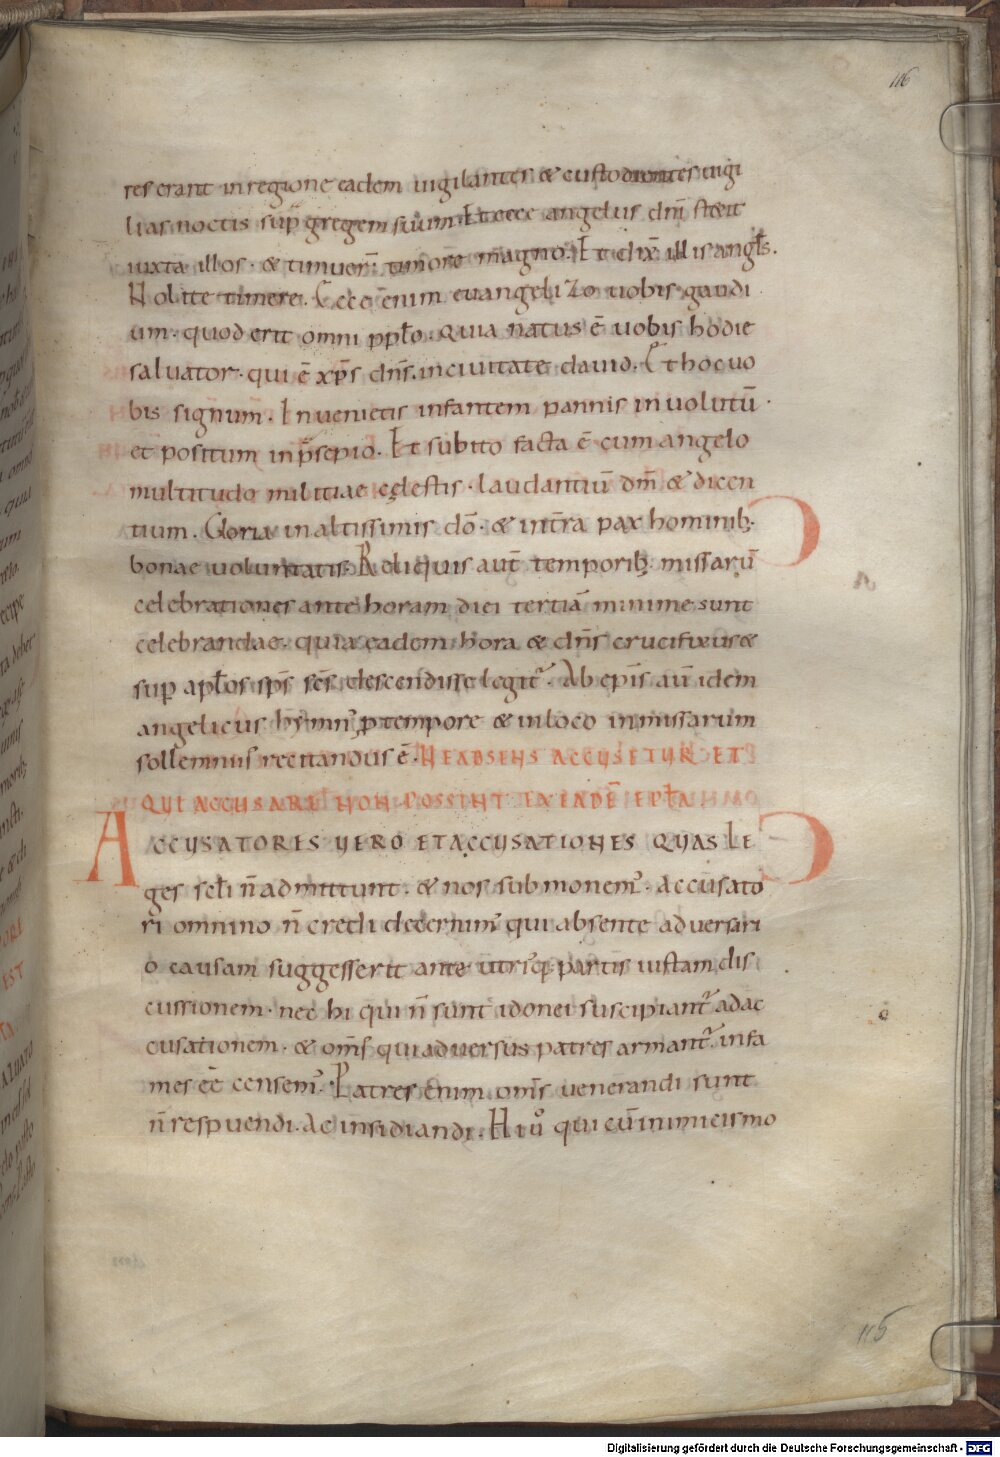 116
res erant in regione eadem uigilantes & custodientes uigi
lias noctis sup̄ gregem suum. Et ecce angelus dn̄i stetit
iuxta illos. & timuer̄ timore magno. Et dix̄ illis angl̄s.
Nolite timere. Ecce enim euangelizo uobis gaudi
um. quod erit omni ppl̄o. quia natus ē uobis hodie
saluator. qui ē xp̄s dn̄s. in ciuitate dauid. Et hoc uo
bis signum. Inuenietis infantem pannis inuolutū.
et positum in p̄sepio. Et subito facta ē cum angelo
multitudo militiae cęlestis. laudantiū dm̄ & dicen
tium. Gloria in altissimis dō. & in tr̄a pax hominib;.
bonae uoluntatis. Reliquis aut̄ temporib; missarū
celebrationes ante horam diei tertiā minime sunt
celebrandae. quia eadem hora & dn̄s crucifixus &
sup̄ apl̄os sp̄s sc̄s descendisse legit᷑. Ab ep̄is aū idem
angelicus hymn᷒ p̱ tempore & in loco in missarum
sollemnis recitandus ē. NE ABSENS ACCUSETUR ET
QUI ACCUSARE NON POSSINT IN EADĒ EPL̄A
ACCUSATORES UERO ET ACCUSATIONES QUAS LE
ges scl̄i n̄ admittunt. & nos submonem᷒. Accusato
ri omnino n̄ credi decernim᷒ qui absente aduersari
o causam suggesserit ante utri᷒q; partis iustam dis
cussionem. nec hi qui n̄ sunt idonei suscipiant᷑ ad ac
cusationem. & om̄s qui aduersus patres armant᷑. infa
mes eē censem᷒. Patres enim om̄s uenerandi sunt
n̄ respuendi. ac insidiandi. Hi uͦ qui cū inimicis mo
115
Digitalisierung gefördert durch die Deutsche Forschungsgemeinschaft - DFG